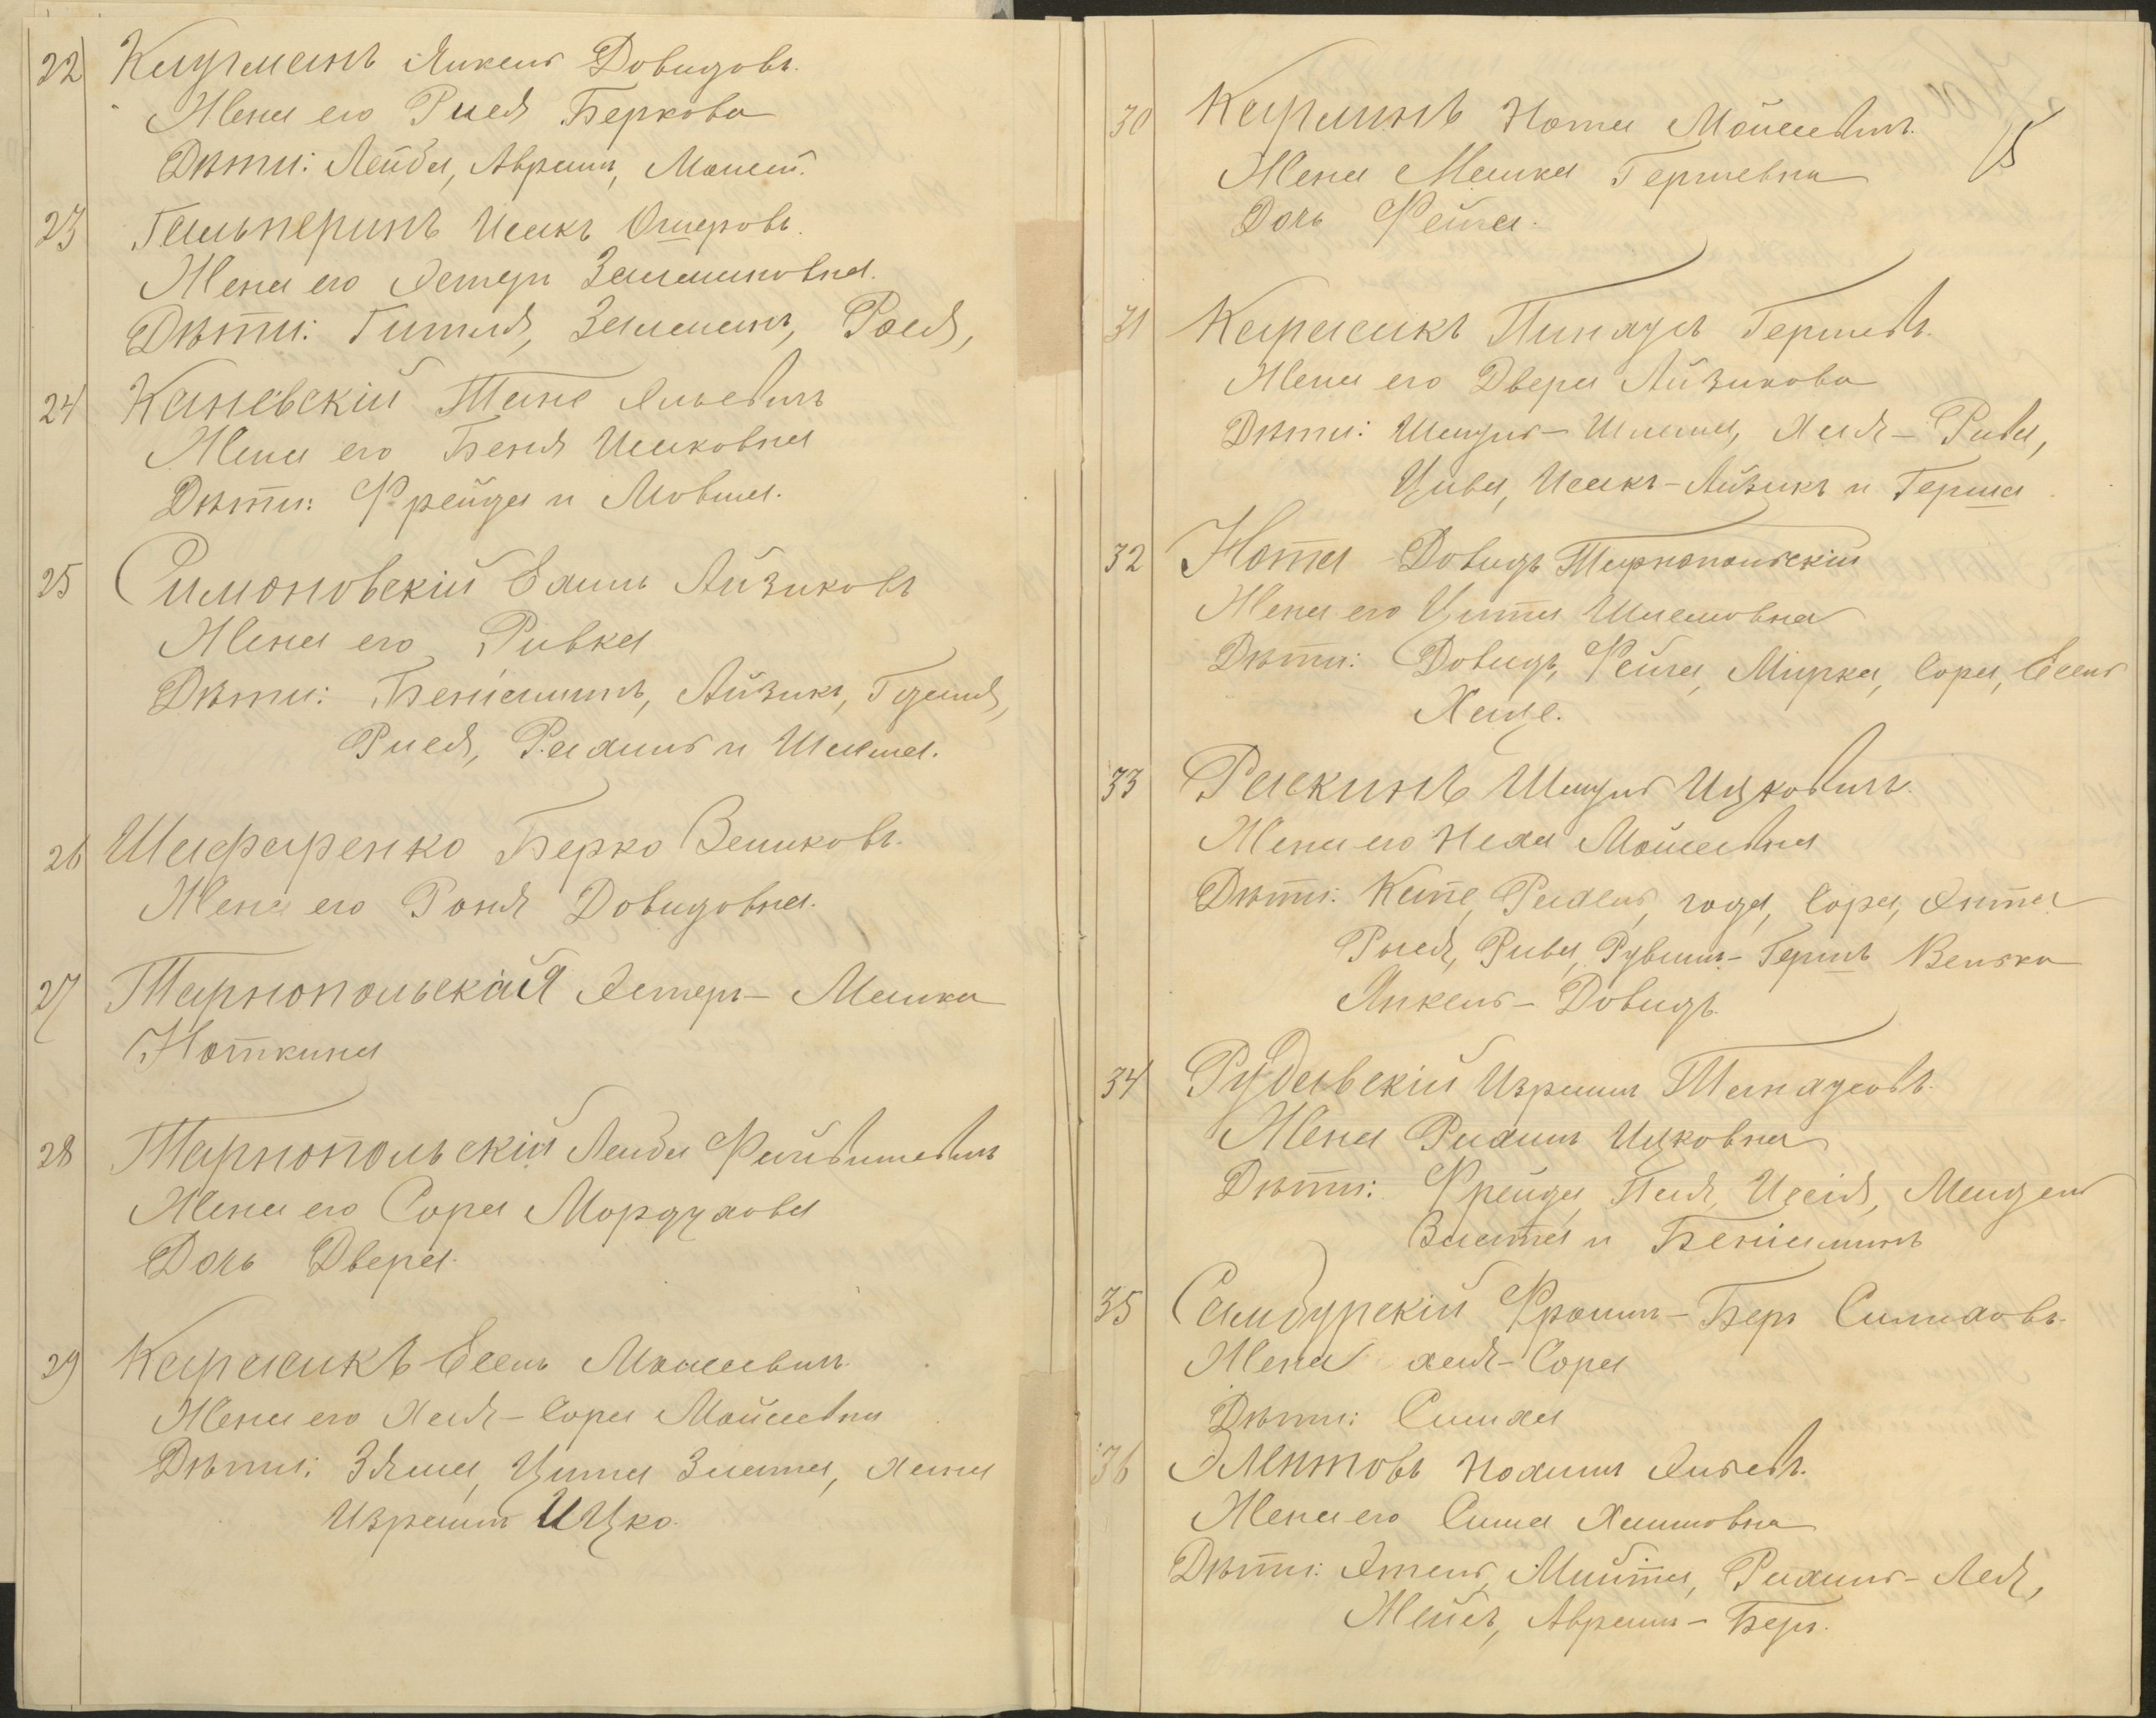 22 Каугманъ Янкель Довидовъ.
Жена его Рися Беркова
Дѣти: Лейба, Авраам, Моисей.
23 Гальперинъ Исакъ Ошеровъ.
Жена его Эстеръ Залмановна.
Дѣти: Гитля, Залманъ, Рося,
24 Каневскій Тане Эльевичъ
Жена его Беня Исаковна
Дѣти: Фрейда и Мовша.
25 Симоновскій Ехиль Айзиковъ
Жена его Ривка
Дѣти: Беніаминъ, Айзикъ, Гдаля,
Рися, Рахиль и Шлема.
26 Шафаренко Берко Великовъ.
Жена его Роня Довидовна.
27 Тарнопольская Эстеръ-Малка
Ноткина
28 Тарнопольскій Лейба Файвишевичъ
Жена его Сора Мордухова
Дочь Двера.
29 Карасикъ Есель Моисеевичъ
Жена его Хая-Сора Мойсеевна
Дѣти: Зяма, Цита Злата,
Израиль Ицко.
30 Каплинъ Нота Мойсеевичъ.
Жена Малка Гершевна
Дочь Фейга.
15
31 Карасикъ Пинхусъ Гершевъ.
Жена его Двера Айзикова
Дѣти: Шендля-Шлема, Хая-Рива,
Цива, Исакъ-Айзикъ и Герша
32 Нота Довидъ Тарнопольскій
Жена его Цита Шлемовна
Дѣти: Довидъ, Фейга, Мирка, Сора, Есель
33 Раскинъ Ицковичъ.
Жена его Неха Мойсеевна
Дѣти: Рахель, года, Сора, Энта
Рыся, Рива, Рувинъ-Гершъ Велька
Янкель-Довидъ.
34 Рудавскій Израиль Танхусовъ.
Жена Рахиль Ицковна
Дѣти: Фрейда, Пая, Иссія, Мендель
Злата и Беніаминъ
35 Самбурскій Фроимъ-Беръ Симховъ.
Жена хая-Сора
Дѣти: Симха
36 Элентовъ Нохимъ Эльевъ.
Жена его Сима Хаимовна
Дѣти: Этель, Минта, Рахиль-Лея,
Авраамъ-Беръ.